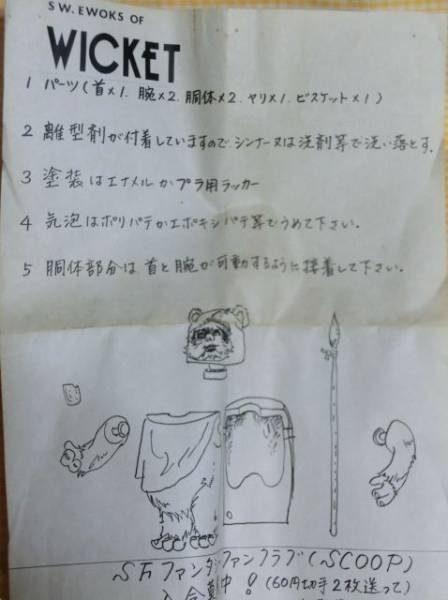 SW. EWOKS OF
WICKET
1 パーツ(首×1. 腕×2. 胴体×2. ヤリ×1. ビスケット×1)
2 離型剤が付着していますので、シンナー又は洗剤等で洗い落とす。
3 塗装はエナメルかプラ用ラッカー
4 気泡はポリパテかエポキシパテ等でうめて下さい。
5 胴体部分は首と腕が可動するように接着して下さい。
SFファンタジファンクラブ(SCOOP)
入会募中!(60円切手2枚送って)